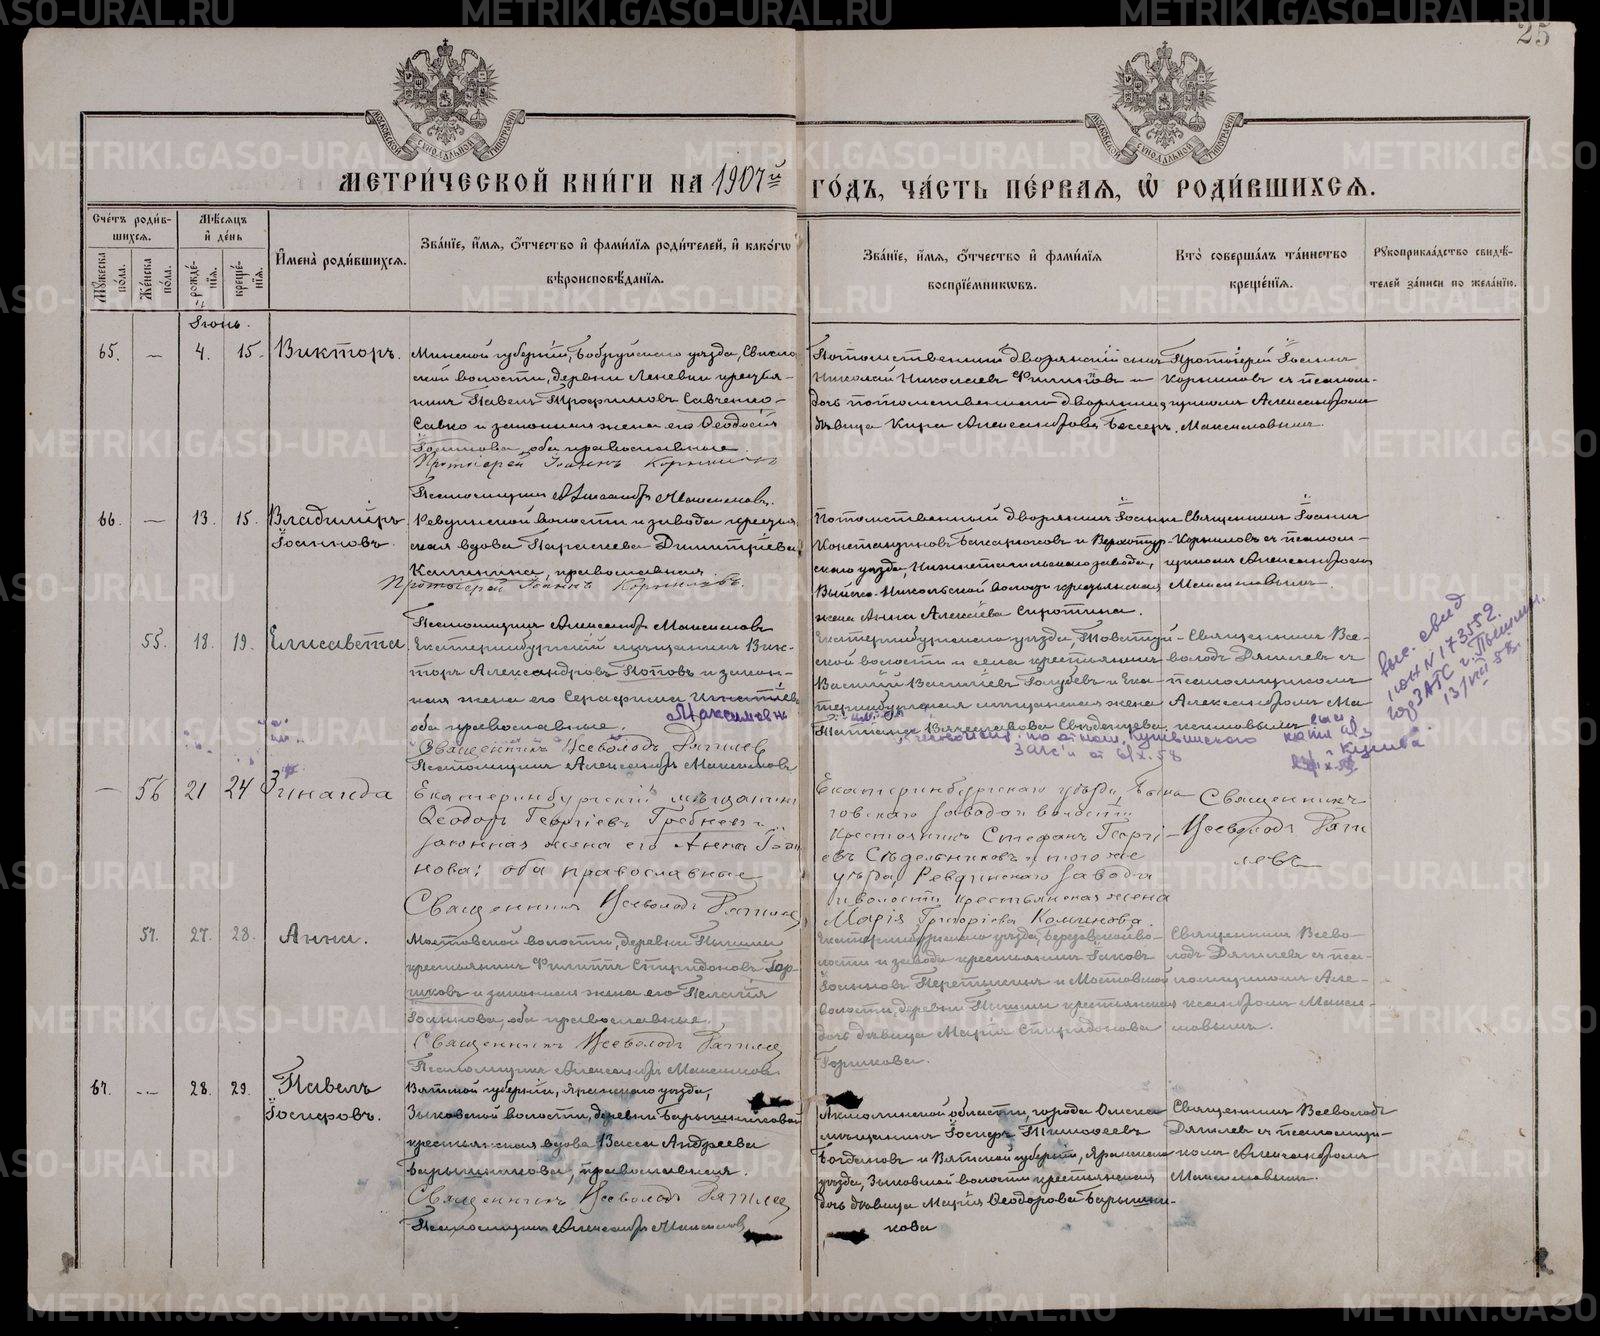 25
МОСКОВСКОЙ СѴНОДАЛЬНОЙ ТИПОГРАФІИ
МОСКОВСКОЙ СѴНОДАЛЬНОЙ ТИПОГРАФІИ
МЕТРИ́ЧЕСКОЙ КНИ́ГИ НА 1907й ГО́ДЪ, ЧА́СТЬ ПЕ́РВАЯ, Ѡ РОДИ́ВШИХСЯ.
Сче́тъ роди́в-
шихся.
Мужеска по́ла.
Же́нска по́ла.
Мѣ́сяцъ
и҆ де́нь
рожде́-
нїя.
креще́-
нїя.
И҆мена̀ роди́вшихся.
Зва́нїе, и҆́мя, о҆́тчество и҆ фами́лїя роди́телей, и҆ како́гѡ
вѣроисповѣ́данїя.
Зва́нїе, и҆́мя, о҆́тчество и҆ фами́лїя
воспрїе́мникѡвъ.
Кто̀ соверша́лъ та́инство
креще́нїя.
Рукоприкла́дство свидѣ́-
телей за́писи по жела́нїю.
Іюнь.
65. — 4. 15. Викторъ.
Минской губерніи, Бобруйскаго уѣзда, Свисло-
ской волости, деревни крестья-
нинъ Павелъ Трофимовъ Савченко-
Савко и законная жена его Ѳеодосія
оба православные
Протоіерей Іоаннъ Корнилов
Псаломщикъ Александръ Максимовъ.
Потомственный дворянскій сынъ
Николай Николаевъ Филиповъ и
дочь потомственнаго дворянина,
дѣвица Кира Александрова Бессеръ.
Протоіерей Іоаннъ
Корниловъ съ псалом-
щикомъ Александромъ
Максимовымъ.
66. — 13. 15. Владиміръ
Іоанновъ.
Ревдинской волости и завода крестьян
ская вдова Параскева Димитріева
Калинина, православная.
Протоіерей Іоаннъ Корниловъ.
Псаломщикъ Александръ Максимовъ
Потомственный дворянинъ Іоаннъ
Константиновъ и Верхотур-
скаго уѣзда, Нижнетагильскаго завода,
Выйско-Никольской волости крестьянская
жена Анна Алексѣева Сиротина.
Священникъ Іоаннъ
Корниловъ съ псалом-
щикомъ Александромъ
Максимовымъ.
55. 18. 19. Елисавета
Екатеринбургскій мѣщанинъ Вик-
торъ Александровъ Поповъ и закон-
ная жена его Серафима Игнатіева
оба православные.
Максимовна
Священникъ Всеволодъ Дягилев
Псаломщикъ Александръ Максимовъ
Екатеринбургскаго уѣзда, Товатуй-
ской волости и села крестьянинъ
Василій Васильевъ Голубевъ и Ека-
теринбургская мѣщанская жена
Татіана
Священникъ Все-
володъ Дягилевъ съ
псаломщикомъ
Александромъ Ма
ксимовымъ
ЗАГС и от 6/X.58
Выс. свид
ЗАГС г.
13/VIII 58.
— 56 21 24 Зинаида
Екатеринбургскій мѣщанинъ
Ѳеодоръ Георгіевъ Гребневъ и
законная жена его Анна Іоан
нова; оба православные
Священникъ Всеволодъ Дягилев
Екатеринбургскаго уѣзда,
говскаго завода и волости
крестьянинъ Стефанъ Георгі-
евъ Сѣдельниковъ и того же
уѣзда, Ревдинскаго завода
и волости крестьянская жена
Марія Григоріева
Священникъ
Всеволодъ Дяги
левъ
57. 27. 28. Анна.
Мостовской волости, деревни Пышмы
крестьянинъ Филиппъ Спиридоновъ Гор-
шковъ и законная жена его Пелагія
Іоаннова, оба православные.
Священникъ Всеволодъ Дягилев
Псаломщикъ Александръ Максимов
Екатеринбургскаго уѣзда, Березовской во-
лости и завода крестьянинъ Іаковъ
Іоанновъ и Мостовской
волости, деревни Пышмы крестьянская
дочь дѣвица Марія Спиридонова
Горшкова.
Священникъ Всево-
лодъ Дягилевъ съ пса-
ломщикомъ Але-
ксандромъ Макси-
мовымъ.
67. — 28. 29. Павелъ
Іосифовъ.
Вятской губерніи, Яранскаго уѣзда,
Зыковской волости, деревни
крестьянская вдова Васса Андреева
Барышникова, православная.
Священникъ Всеволодъ Дягилев
Псаломщикъ Александръ Максимов
Акмолинской области, города Омска
мѣщанинъ Іосифъ Тимоѳеевъ
Богдановъ и Вятской губерніи, Яранскаго
уѣзда, Зыковской волости крестьянская
дочь дѣвица Марія Ѳеодорова Барышни-
кова
Священникъ Всеволодъ
Дягилевъ съ псаломщи-
комъ Александромъ
Максимовымъ.
METRIKI.GASO-URAL.RU